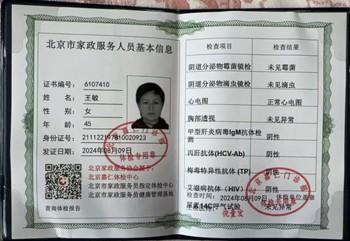 北京市家政服务人员基本信息
证书编号 6107410
姓名 王敏
性别 女
年龄 45
身份证号
发证日期 2024年08月09日
北京家政服务协会
北京嘉仁体检中心
北京市家政服务员指定体检中心
北京市家政服务员健康管理系统
查询体检报告
体检专用章
检查项目 检查结果
阴道分泌物霉菌镜检 未见霉菌
阴道分泌物滴虫镜检 未见滴虫
心电图 正常心电图
胸部透视 未见异常
甲型肝炎病毒IgM抗体检测 阴性
丙肝抗体(HCV-Ab) 阴性
梅毒特异性抗体(TP) 阴性
艾滋病抗体(HIV) 阴性
检查时间 2024年08月09日
尿素14C呼气试验 未见异常